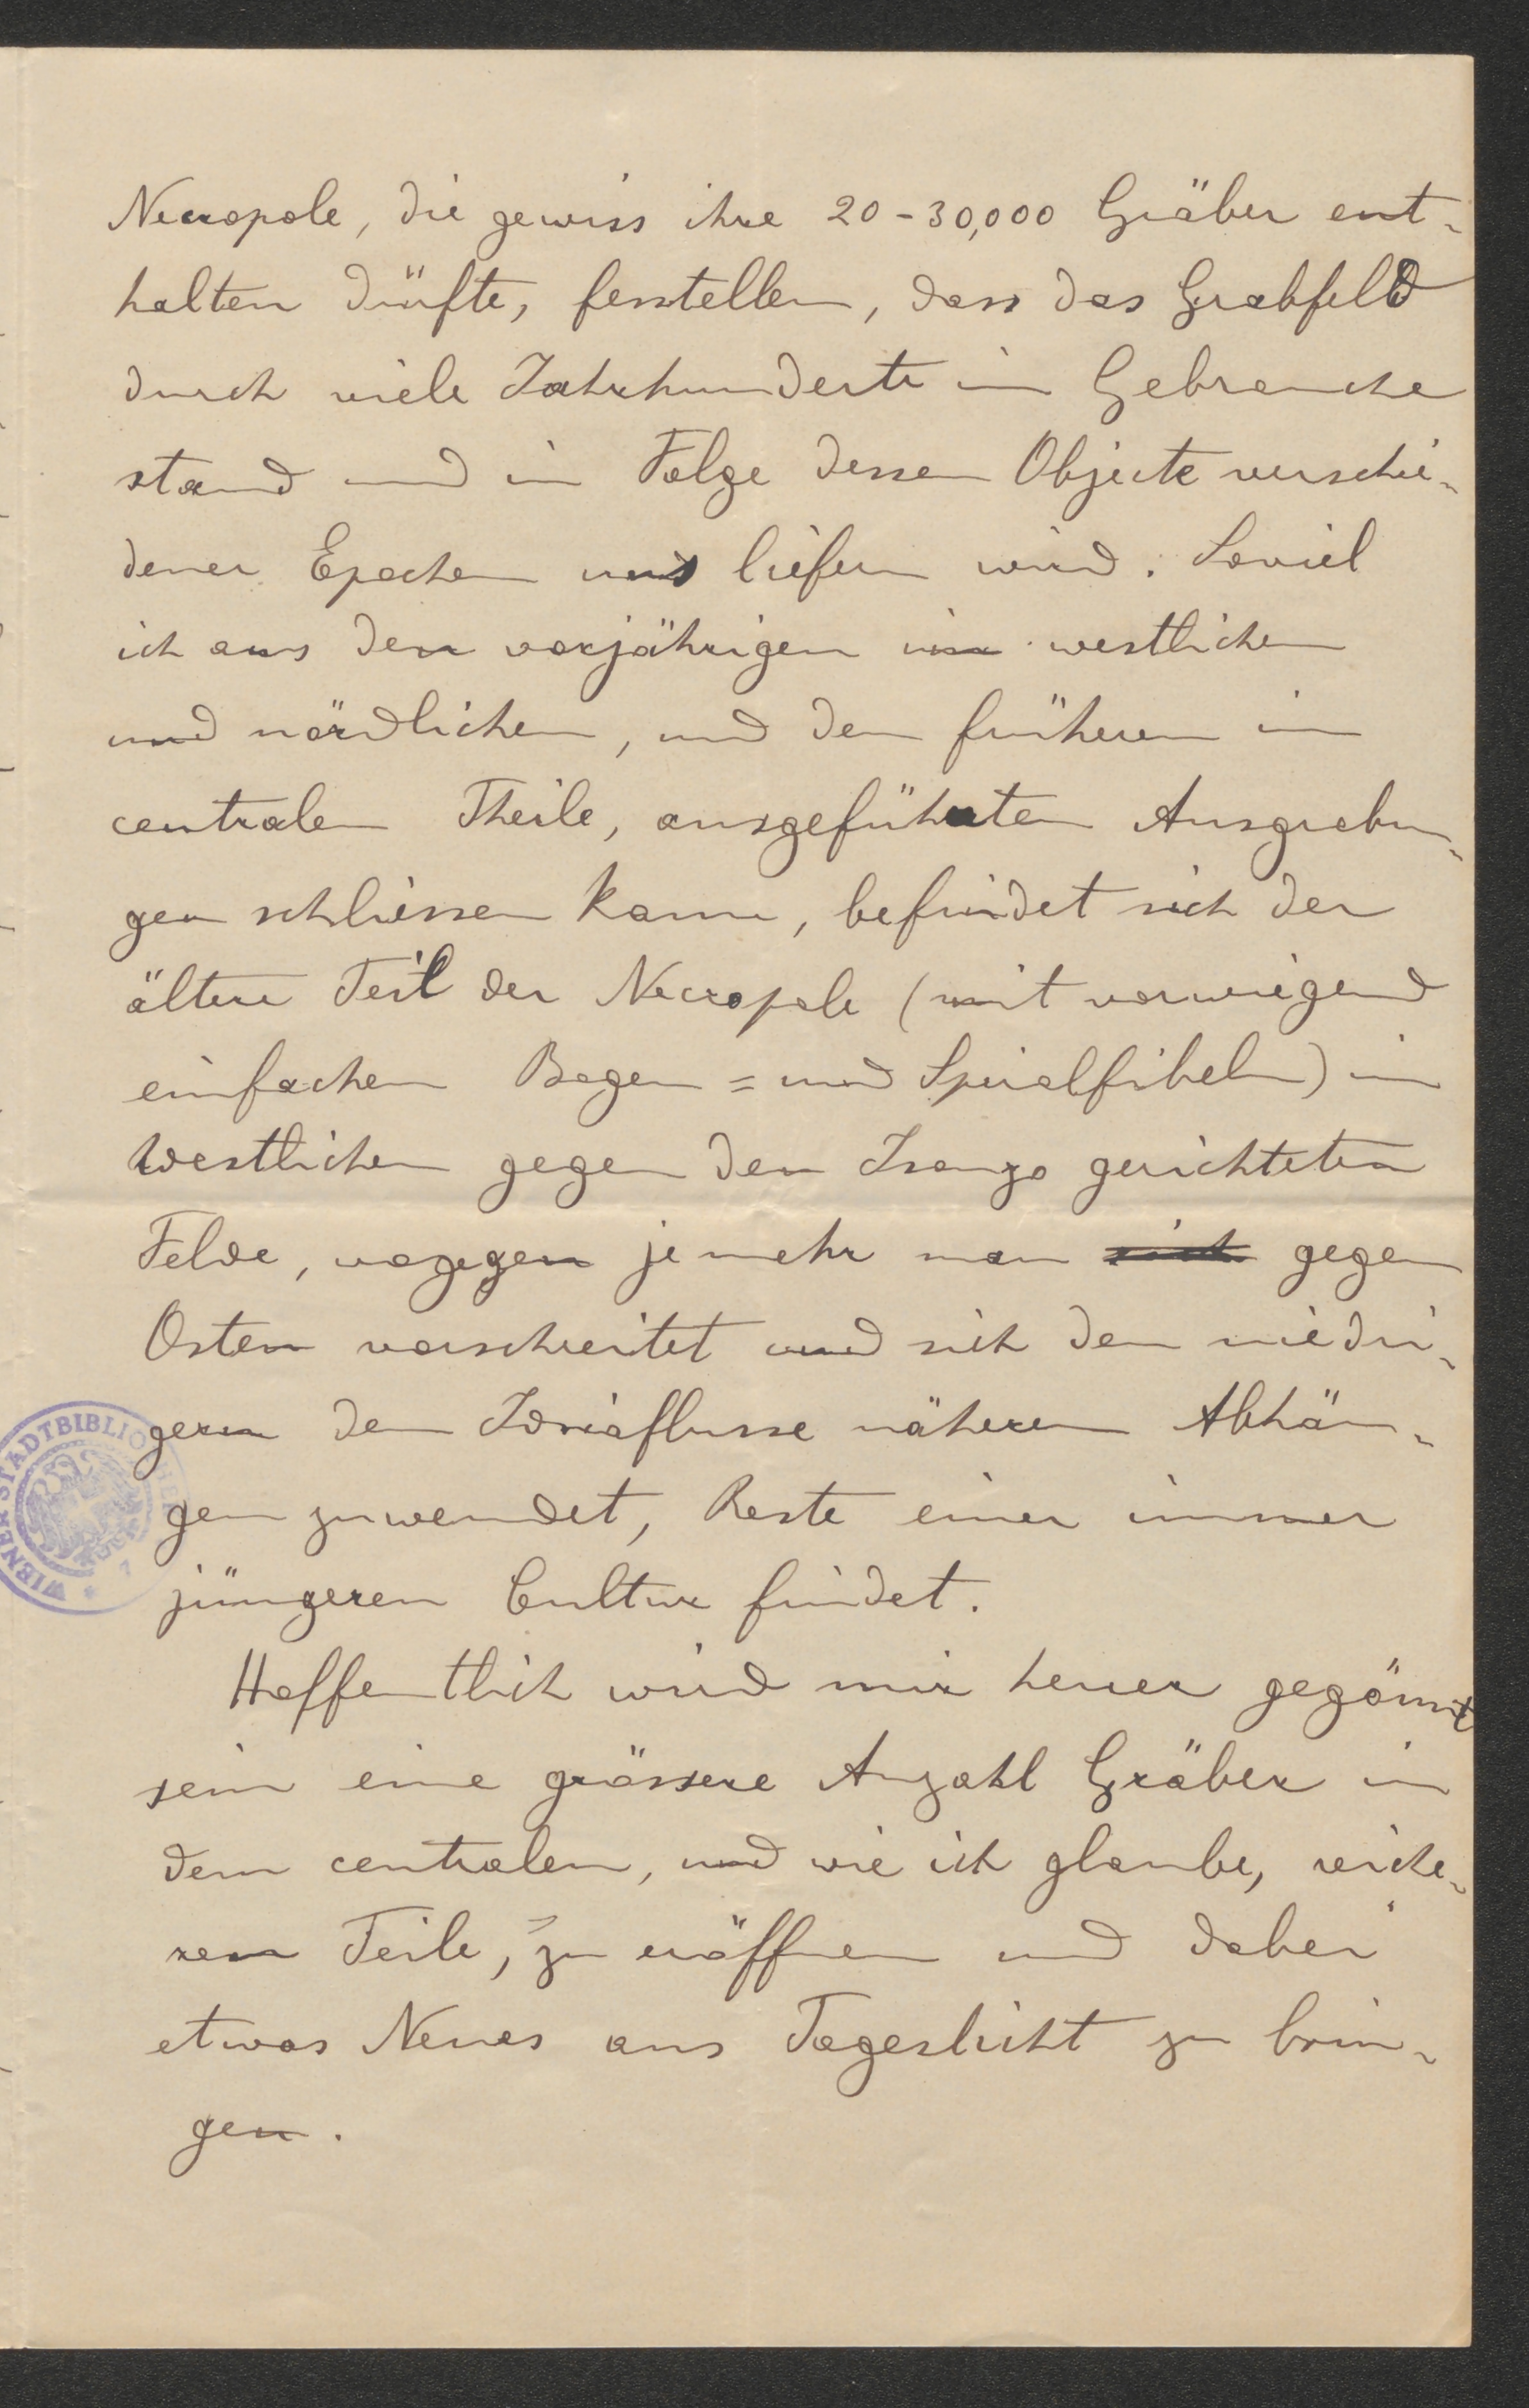 Necropole, die gewiss ihre 20-30,000 Gräber ent-
halten dürfte, fesstellen, dass das Grabfeld
durch viele Jahrhunderte in Gebrauche
stand und in Folge dessen Objecte verschie-
dener Epochen uns liefern wird. Soviel
ich aus den vorjährigen im westlichen
und nördlichen, und den früheren im
centralen Theile, ausgeführten Ausgrabun-
gen schliessen kann, befindet sich der
ältere Teil der Necropole (mit vorwiegend
einfachen Bogen= und Spiralfibeln) im
westlichen gegen den Isonzo gerichteten
Felde, wogegen je mehr man sich gegen
Osten vorschreitet und sich den niedri-
geren dem Idriaflusse näheren Abhän-
gen zuwendet, Reste einer immer
jüngeren Cultur findet.
Hoffentlich wird mir heuer gegönnt
sein eine grössere Anzahl Gräber in
dem centralen, und wie ich glaube, reiche-
rem Teile, zu eröffnen und dabei
etwas Neues ans Tageslicht zu brin-
gen.
WIENER STADTBIBLIOTHEK